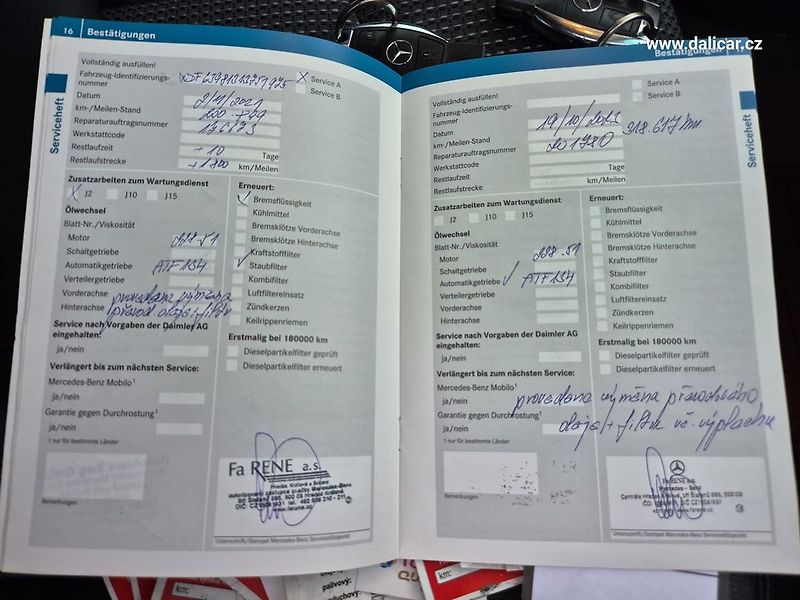 www.dalicar.cz
16 Bestätigungen
Serviceheft
Vollständig ausfüllen!
Fahrzeug-Identifizierungs-
nummer
X Service A
Service B
Datum 2/11/2021
km-/Meilen-Stand
Reparaturauftragsnummer
Werkstattcode
Restlaufzeit + 10 Tage
Restlaufstrecke + 1800 km/Meilen
Zusatzarbeiten zum Wartungsdienst
X J2 J10 J15
Ölwechsel
Blatt-Nr./Viskosität
Motor
Schaltgetriebe
Automatikgetriebe ATF 134
Verteilergetriebe
Vorderachse provedena výměna
Hinterachse převod. oleje + filtru
Service nach Vorgaben der Daimler AG
eingehalten:
ja/nein
Verlängert bis zum nächsten Service:
Mercedes-Benz Mobilo¹
ja/nein
Garantie gegen Durchrostung¹
ja/nein
1 nur für bestimmte Länder
Bemerkungen
Erneuert:
Bremsflüssigkeit
Kühlmittel
Bremsklötze Vorderachse
Bremsklötze Hinterachse
Kraftstofffilter
Staubfilter
Kombifilter
Luftfiltereinsatz
Zündkerzen
Keilrippenriemen
Erstmalig bei 180000 km
Dieselpartikelfilter geprüft
Dieselpartikelfilter erneuert
Fa RENE a.s.
Hradec Králové a Svitavy
autorizovaný zástupce značky Mercedes-Benz
www.farene.cz
Unterschrift/Stempel Mercedes-Benz Servicestützpunkt
Bestätigungen
Serviceheft
Vollständig ausfüllen!
Fahrzeug-Identifizierungs-
nummer
Service A
Service B
Datum 19/10/2023
km-/Meilen-Stand 218.617/km
Reparaturauftragsnummer
Werkstattcode
Restlaufzeit Tage
Restlaufstrecke km/Meilen
Zusatzarbeiten zum Wartungsdienst
J2 J10 J15
Ölwechsel
Blatt-Nr./Viskosität
Motor
Schaltgetriebe
Automatikgetriebe ATF 134
Verteilergetriebe
Vorderachse
Hinterachse
Service nach Vorgaben der Daimler AG
eingehalten:
ja/nein
Verlängert bis zum nächsten Service:
Mercedes-Benz Mobilo¹
ja/nein
provedena výměna převodového
Garantie gegen Durchrostung¹
oleje + filtru vč. výplachu
ja/nein
1 nur für bestimmte Länder
Bemerkungen
Erneuert:
Bremsflüssigkeit
Kühlmittel
Bremsklötze Vorderachse
Bremsklötze Hinterachse
Kraftstofffilter
Staubfilter
Kombifilter
Luftfiltereinsatz
Zündkerzen
Keilrippenriemen
Erstmalig bei 180000 km
Dieselpartikelfilter geprüft
Dieselpartikelfilter erneuert
Fa RENE a.s.
Mercedes - Benz
3
Unterschrift/Stempel Mercedes-Benz Servicestützpunkt
km:
palivový:
km: